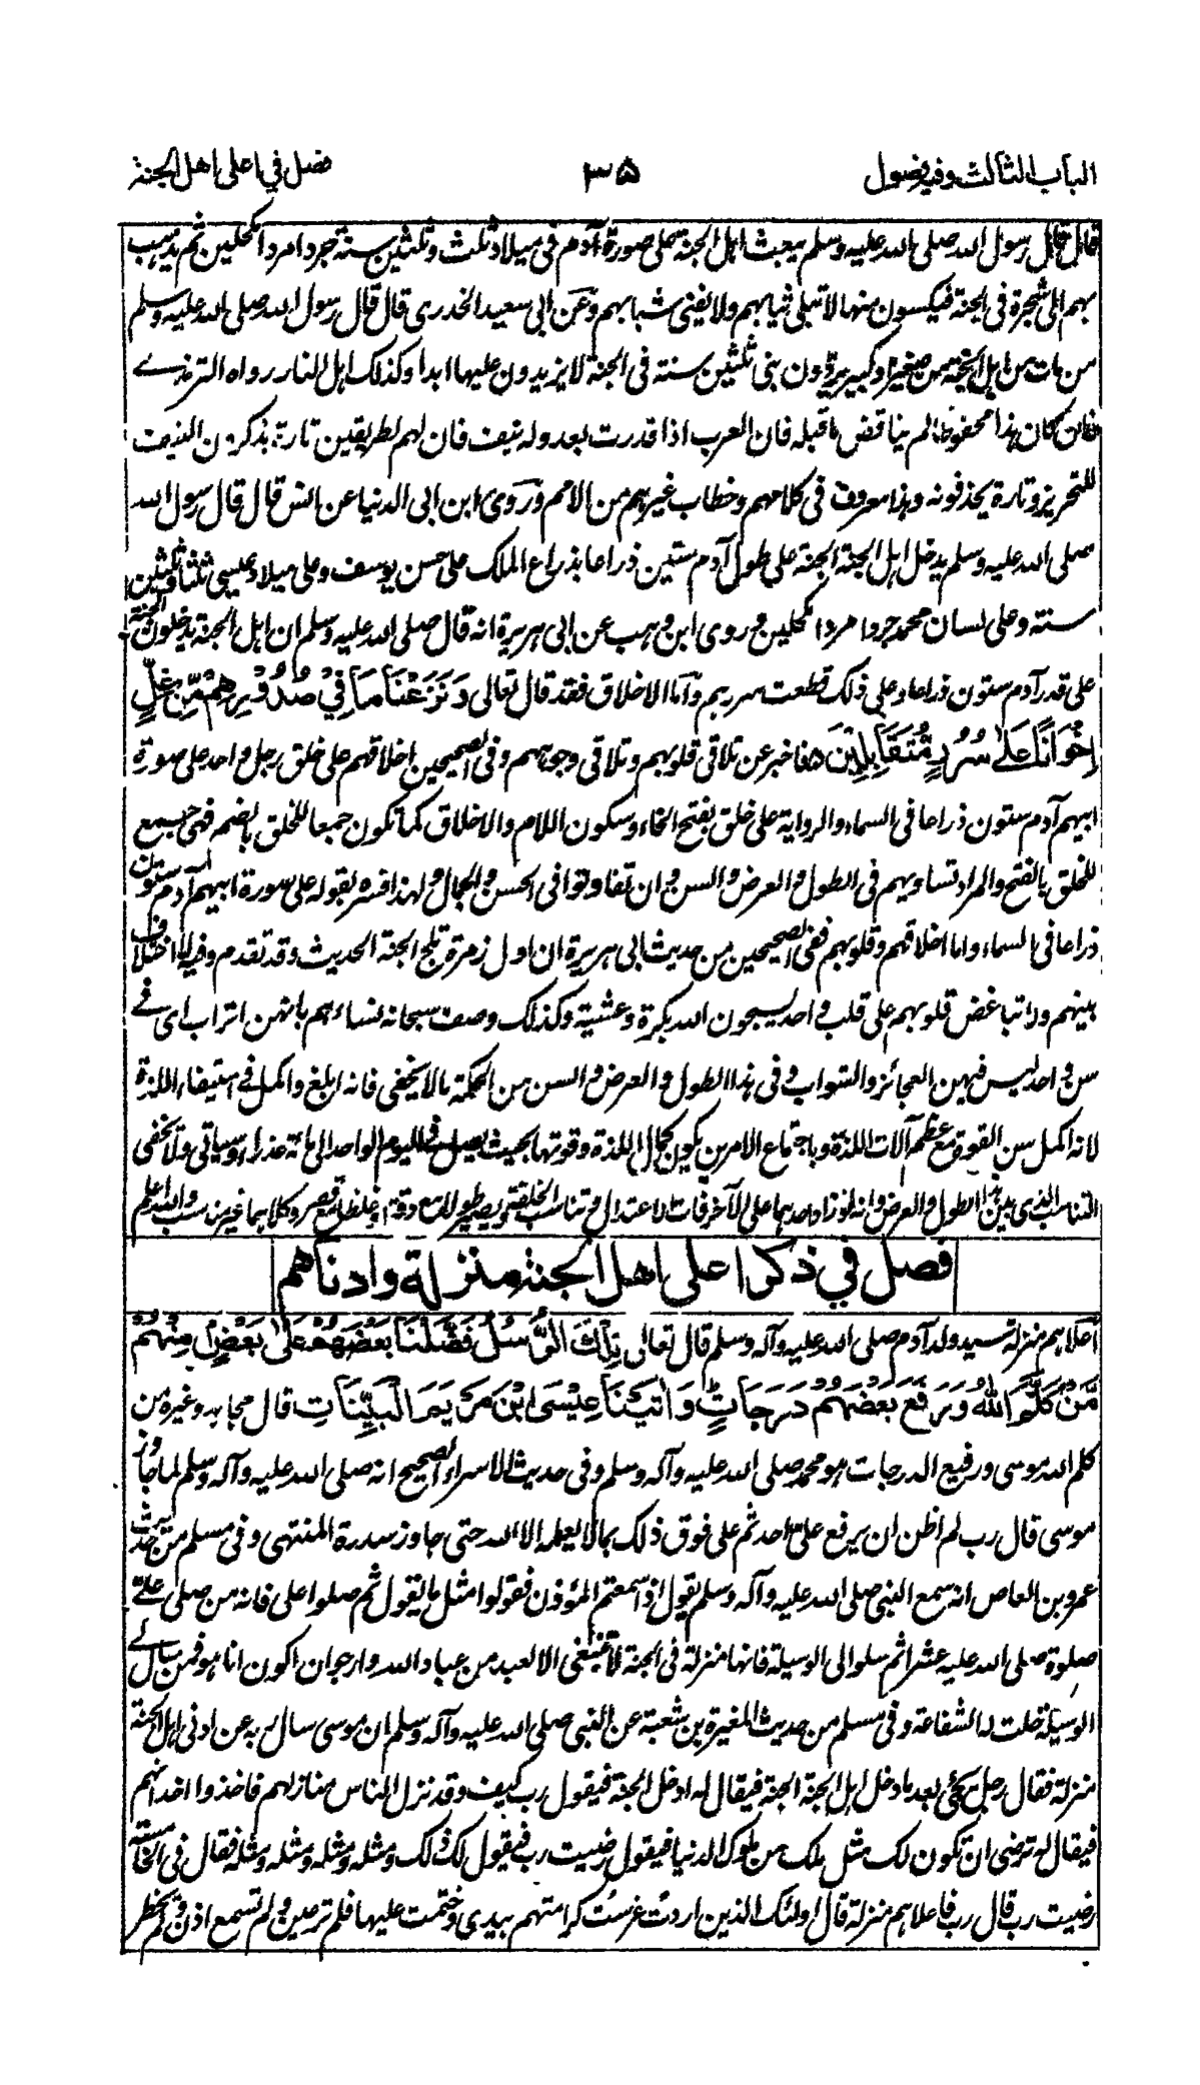 الباب الثالث وفيه فصول ٣٥ فصل في اعلى اهل الجنة
قال قال رسول الله صلى الله عليه وسلم يبعث اهل الجنة على صورة آدم فى ميلاد ثلث وثلثين سنة جردا مردا مكحلين ثم يذهب
بهم الى شجرة فى الجنة فيكسون منها لا تبلى ثيابهم ولا يفنى شبابهم وعن ابى سعيد الخدرى قال قال رسول الله صلى الله عليه وسلم
من مات من اهل الجنة من صغير او كبير يردون بنى ثلثين سنة فى الجنة لا يزيدون عليها ابدا وكذلك اهل النار رواه الترمذي
فان كان هذا محفوظا لم يناقض ما قبله فان العرب اذا قدرت بعدد له نيف فان لهم طريقين تارة يذكرون النيف
للتحرير وتارة يحذفونه وهذا معروف فى كلامهم وخطاب غيرهم من الامم وروى ابن ابى الدنيا عن انس قال قال رسول الله
صلى الله عليه وسلم يدخل اهل الجنة الجنة على طول آدم ستين ذراعا بذراع الملك على حسن يوسف وعلى ميلاد عيسى ثلثا وثلثين
سنة وعلى لسان محمد جردا مردا مكحلين وروى ابن وهب عن ابى هريرة انه قال صلى الله عليه وسلم ان اهل الجنة يدخلون الجنة
على قدر آدم ستون ذراعا وعلى ذلك قطعت سررهم واما الاخلاق فقد قال تعالى وَنَزَعْنَا مَا فِيْ صُدُوْرِهِمْ مِّنْ غِلٍّ
اِخْوَانًا عَلٰى سُرُرٍ مُّتَقَابِلِيْنَ فاخبر عن تلاقى قلوبهم وتلاقى وجوههم وفى الصحيحين اخلاقهم على خلق رجل واحد على صورة
ابيهم آدم ستون ذراعا فى السماء والرواية على خلق بفتح الخاء وسكون اللام والاخلاق كما تكون جمعا للخلق بالضم فهى جمع
للخلق بالفتح والمراد تساويهم فى الطول والعرض والسن وان تفاوتوا فى الحسن والجمال ولهذا فسره بقوله على صورة ابيهم آدم ستون
ذراعا فى السماء واما اخلاقهم وقلوبهم ففى الصحيحين من حديث ابى هريرة ان اول زمرة تلج الجنة الحديث وقد تقدم وفيه لا اختلاف
بينهم ولا تباغض قلوبهم على قلب واحد يسبحون الله بكرة وعشية وكذلك وصف سبحانه نساءهم بانهن اتراب اى في
سن واحد ليس فيهن العجائز والشواب وفى هذا الطول والعرض والسن من الحكمة مالا يخفى فانه ابلغ واكمل في استيفاء اللذة
لانه اكمل سن القوة مع عظم آلات اللذة وباجتماع الامرين يكون كمال اللذة وقوتها بحيث يصل فى اليوم الواحد الى مائة عذراء وسياتى ولا يخفى
التناسب الذى بين هذا الطول والعرض وانه لو زاد احدهما على الآخر فات الاعتدال وتناسب الخلقة ويصير طولا مع دقة او غلظا مع قصر وكلاهما غير مناسب والله اعلم
فصل في ذكر اعلى اهل الجنة منزلة وادناهم
اعلاهم منزلة سيد ولد آدم صلى الله عليه وآله وسلم قال تعالى تِلْكَ الرُّسُلُ فَضَّلْنَا بَعْضَهُمْ عَلٰى بَعْضٍ مِنْهُمْ
مَّنْ كَلَّمَ اللّٰهُ وَرَفَعَ بَعْضَهُمْ دَرَجَاتٍ وَاٰتَيْنَا عِيْسَى ابْنَ مَرْيَمَ الْبَيِّنَاتِ قال مجاهد وغيره من
كلم الله موسى ورفيع الدرجات هو محمد صلى الله عليه وآله وسلم وفى حديث الاسراء الصحيح انه صلى الله عليه وآله وسلم لما جاوز
موسى قال رب لم اظن ان يرفع علىّ احد ثم على فوق ذلك بما لا يعلمه الا الله حتى جاوز سدرة المنتهى وفى مسلم من حديث
عمرو بن العاص انه سمع النبى صلى الله عليه وآله وسلم يقول اذ سمعتم المؤذن فقولوا مثل ما يقول ثم صلوا على فانه من صلى علىّ
صلوة صلى الله عليه عشرا ثم سلوا لى الوسيلة فانها منزلة فى الجنة لا تنبغى الا لعبد من عباد الله وارجو ان اكون انا هو فمن سال لي
الوسيلة حلت له الشفاعة وفى مسلم من حديث المغيرة بن شعبة عن النبى صلى الله عليه وآله وسلم ان موسى سال ربه عن ادنى اهل الجنة
منزلة فقال رجل يجئ بعد ما دخل اهل الجنة الجنة فيقال له ادخل الجنة فيقول رب كيف وقد نزل الناس منازلهم فاخذوا اخذاتهم
فيقال له ترضى ان تكون لك مثل ملك من ملوك الدنيا فيقول رضيت رب فيقول لك ذلك ومثله ومثله ومثله ومثله فقال فى الخامسة
رضيت رب قال رب فاعلاهم منزلة قال اولئك الذين اردت غرست كرامتهم بيدى وختمت عليها فلم تر عين ولم تسمع اذن ولم يخطر